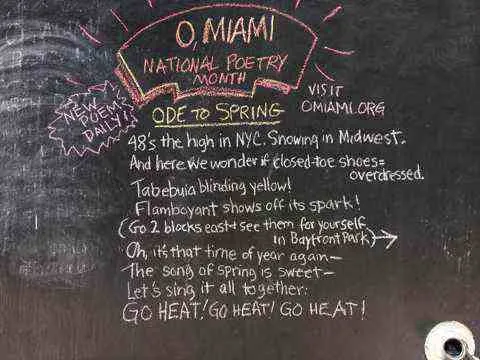 O, MIAMI
NATIONAL POETRY
MONTH
VISIT
OMIAMI.ORG
NEW
POEM
DAILY!
ODE TO SPRING
48's the high in NYC. Snowing in Midwest.
And here we wonder if closed-toe shoes=
overdressed.
Tabebuia blinding yellow!
Flamboyant shows off its spark!
(Go 2 blocks east + see them for yourself
in Bayfront Park) →
Oh, it's that time of year again—
The song of spring is sweet—
Let's sing it all together:
GO HEAT! GO HEAT! GO HEAT!